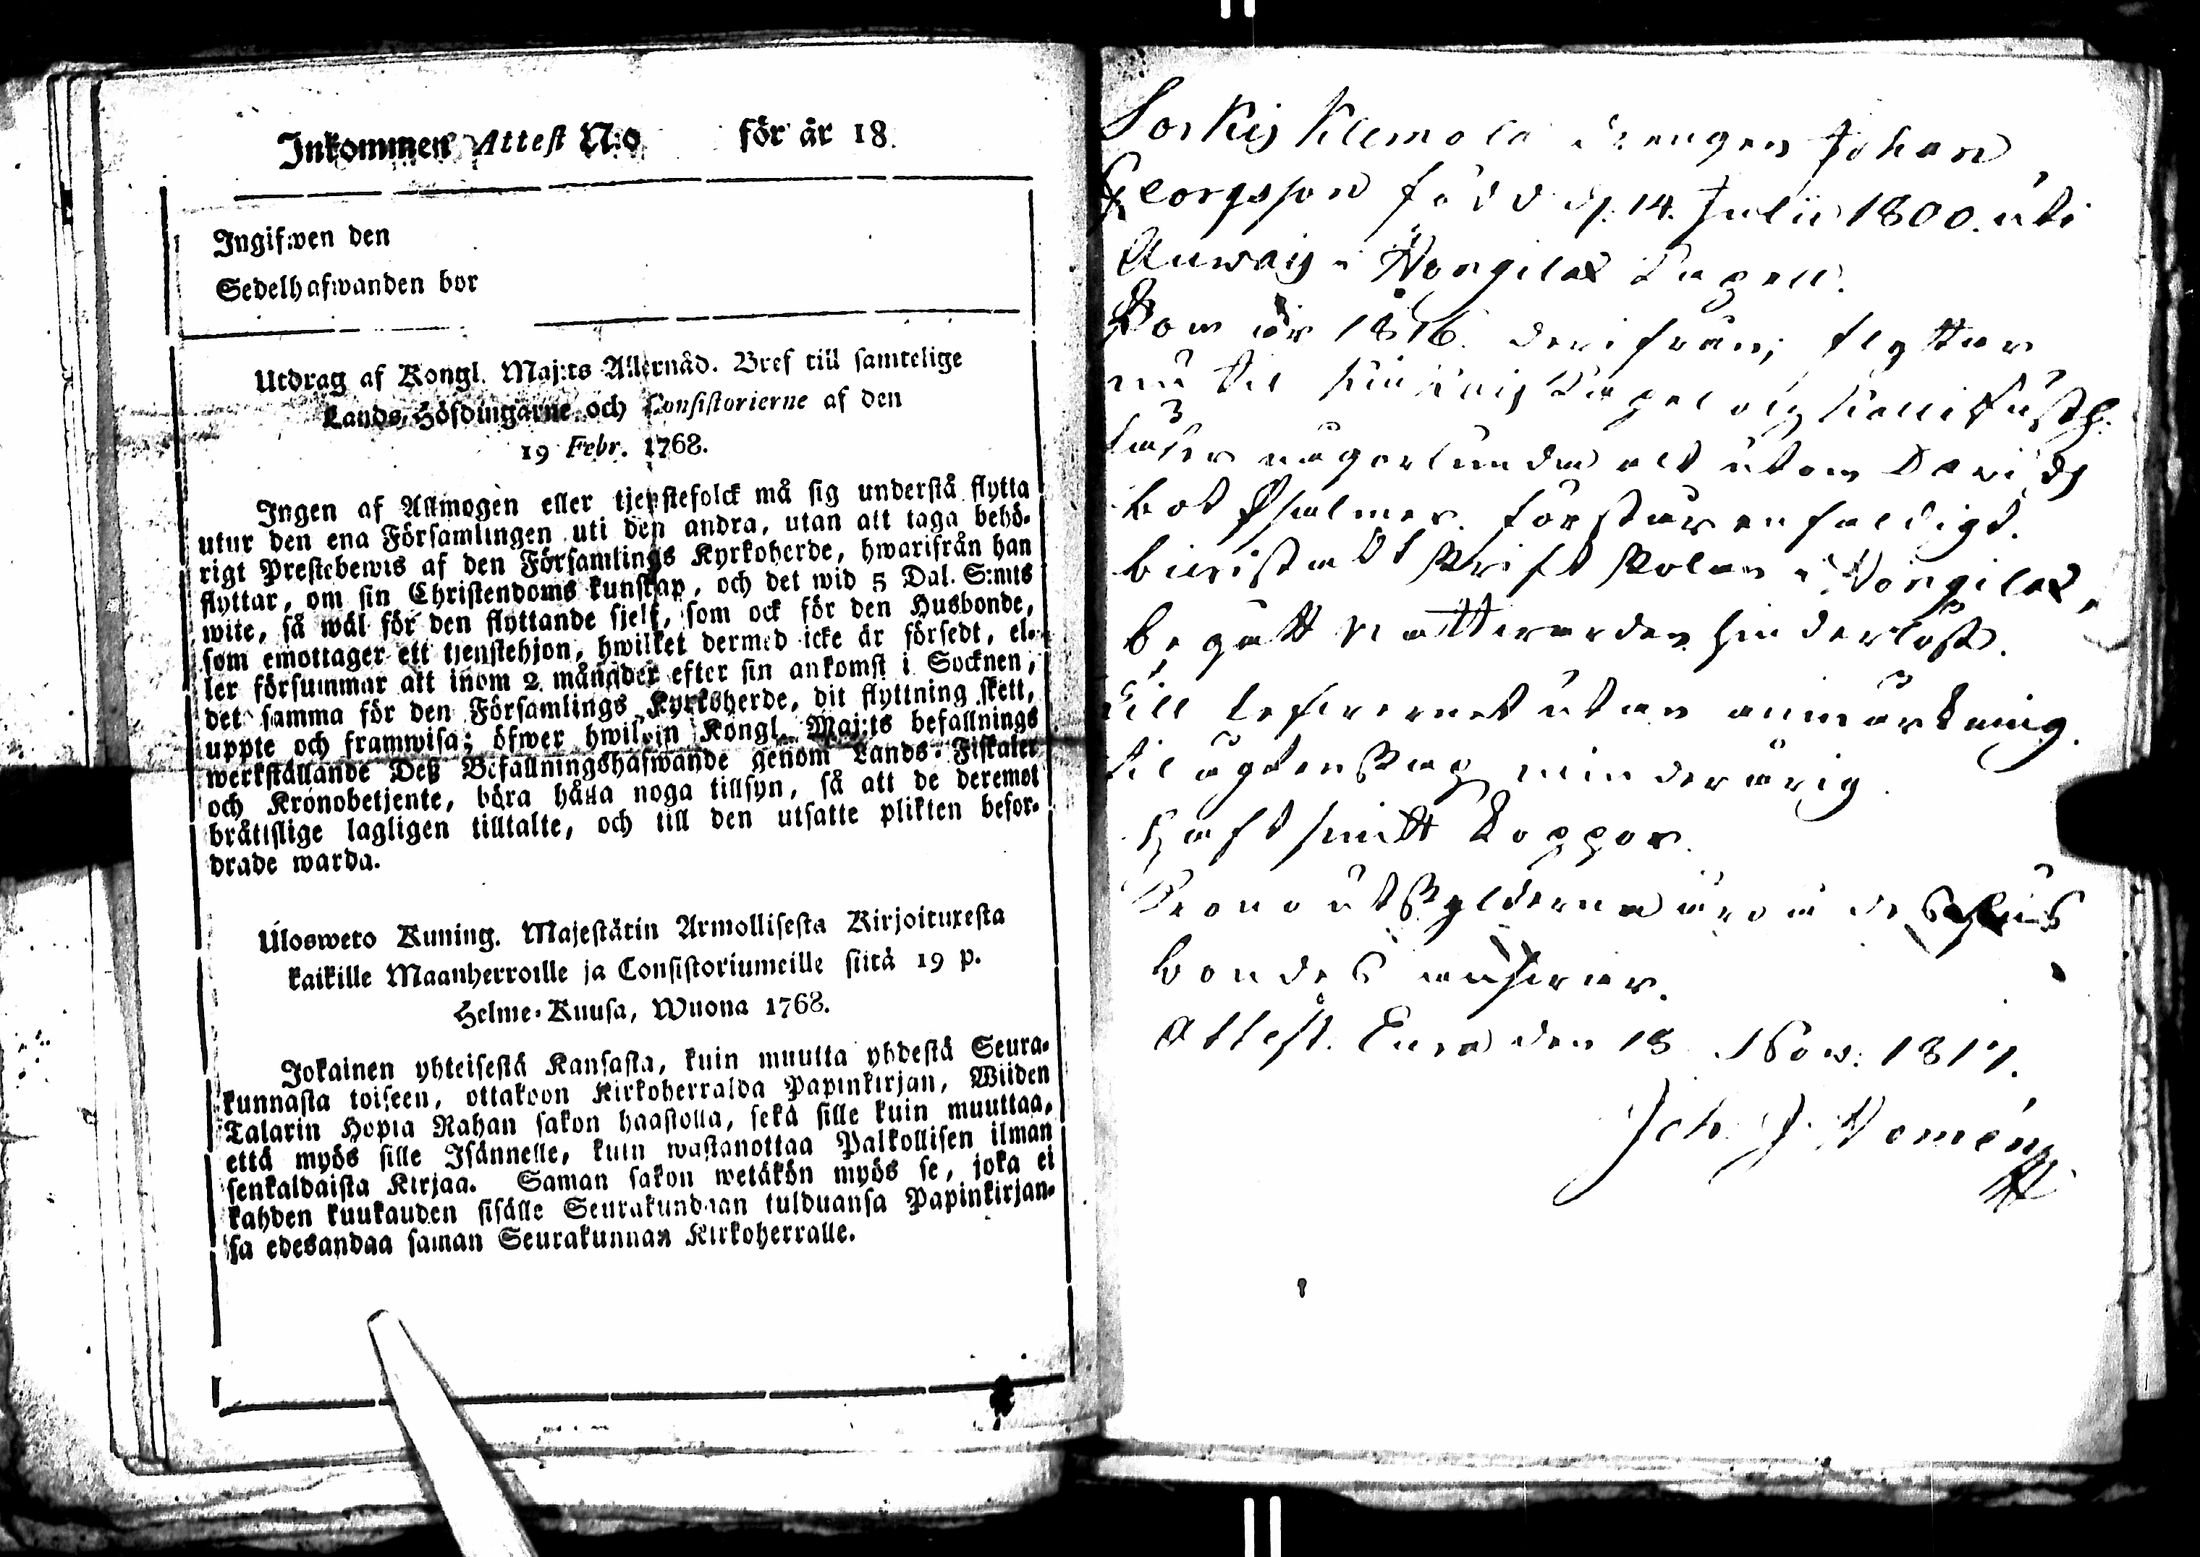 Inkommen Attest N:o för år 18
Ingifwen den
Sedelhafwanden bor
Utdrag af Kongl. Maj:ts Allernåd. Bref till samtelige
Lands-Höfdingarne och Consistorierne af den
19 Febr. 1768.
Ingen af Allmogen eller tjenstefolck må sig understå flytta
utur den ena Församlingen uti den andra, utan att taga behö-
rigt Prestebewis af den Församlings Kyrkoherde, hwarifrån han
flyttar, om sin Christendoms kunskap, och det wid 5 Dal. S:mts
wite, så wäl för den flyttande sjelf, som ock för den Husbonde,
som emottager ett tjenstehjon, hwilket dermed icke är försedt, el-
ler försummar att inom 2 månader efter sin ankomst i Socknen,
det samma för den Församlings Kyrkoherde, dit flyttning skett,
uppte och framwisa; öfwer hwilken Kongl. Maj:ts befallnings
werkställande Deß Befallningshafwande genom Lands-Fiskaler
och Kronobetjente, böra hålla noga tillsyn, så att de deremot
bråttslige lagligen tilltalte, och till den utsatte plikten befor-
drade warda.
Ulosweto Kuning. Majestätin Armollisesta Kirjoituxesta
kaikille Maanherroille ja Consistoriumeille siitä 19 p.
Helme-Kuusa, Wuona 1768.
Jokainen yhteisestä Kansasta, kuin muutta yhdestä Seura-
kunnasta toiseen, ottakoon Kirkoherralda Papinkirjan, Wiiden
Talarin Hopia Rahan sakon haastolla, sekä sille kuin muuttaa,
että myös sille Isännelle, kuin wastanottaa Palkollisen ilman
senkaldaista Kirjaa. Saman sakon wetäkön myös se, joka ei
kahden kuukauden sisälle Seurakundaan tulduansa Papinkirjan-
sa edesandaa saman Seurakunnan Kirkoherralle.
Sorkis Klemola drengen Johan
Georgsson född d. 14. Julii 1800. uti
Auwais i Hongilax Capell.
Kom år 1816. derifrån; flyttar
nu til Capel och
läser någorlunda alt utom Davids
bot Psalmer. förstår enfaldigt.
biwistadt Skrift Skolan i Hongilax,
begått Nattwarden hinderlöst.
till lefwernet utan anmärkning.
til ägtenskap minderårig.
Haft smitt koppor.
Krono utskylderna äro å dess hus
bondes answar.
Attest. Eura den 18 Nov. 1817.
Joh. J.